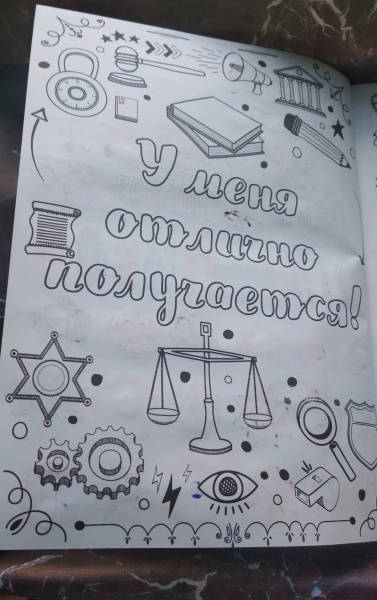 У меня
отлично
получается!